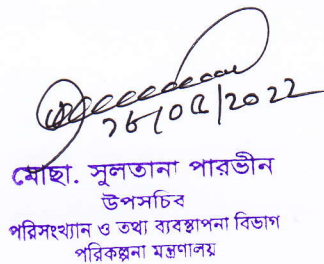 মোছা. সুলতানা পারভীন
উপসচিব
পরিসংখ্যান ও তথ্য ব্যবস্থাপনা বিভাগ
পরিকল্পনা মন্ত্রণালয়